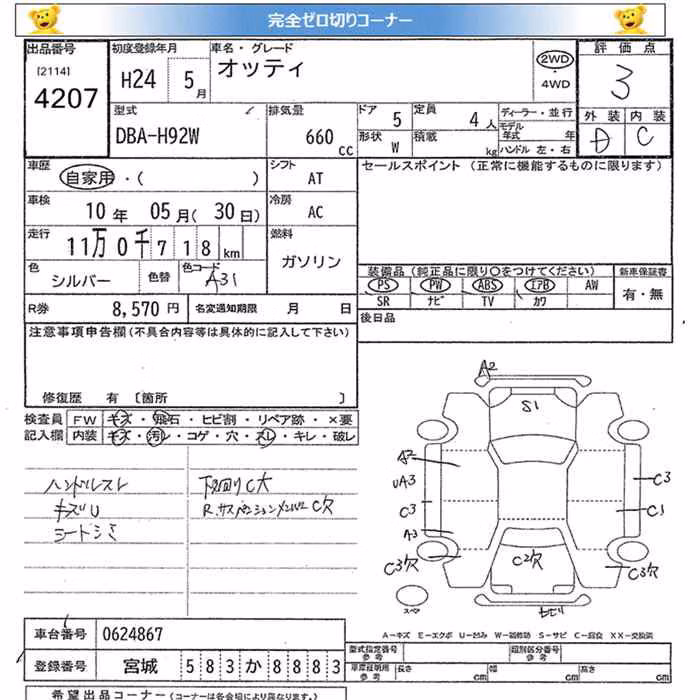 完全ゼロ切りコーナー
出品番号 初度登録年月 車名・グレード 評価点
[2114] H24 5月 オッティ 2WD・4WD 3
4207
型式 排気量 ドア 5 定員 4人 ディーラー・並行 外装 内装
DBA-H92W 660cc 形状 W 積載 kg モデル年式 年 D C
ハンドル 左・右
車歴 自家用・( ) シフト AT セールスポイント (正常に機能するものに限ります)
車検 10年 05月(30日) 冷房 AC
走行 11万0千718km 燃料 ガソリン
色 シルバー 色替 色コード A31
装備品 (純正品に限り○をつけてください) 新車保証書
PS PW ABS エアB AW 有・無
SR ナビ TV カワ
R券 8,570円 名変通知期限 月 日 後日品
注意事項申告欄(不具合内容等は具体的に記入して下さい)
修復歴 有 [箇所 ]
検査員 FW キズ・飛石・ヒビ割・リペア跡・×要
記入欄 内装 キズ・汚レ・コゲ・穴・スレ・キレ・破レ
ハンドルスレ 下回りC大
キズU R.サスペンションメンバーC穴
シートシミ
A2
S1
A2
UA3 C3
C3 C1
A3
C3穴 C2穴 C3穴
スペア
A-キズ E-エクボ U-凹み W-補修跡 S-サビ C-腐食 XX-交換済
車台番号 0624867
型式指定番号 参考 類別区分番号 参考
登録番号 宮城 583 か 8883
車庫証明用 参考 長さ cm 幅 cm 高さ cm
希望出品コーナー (コーナーは各会場により異なります。)